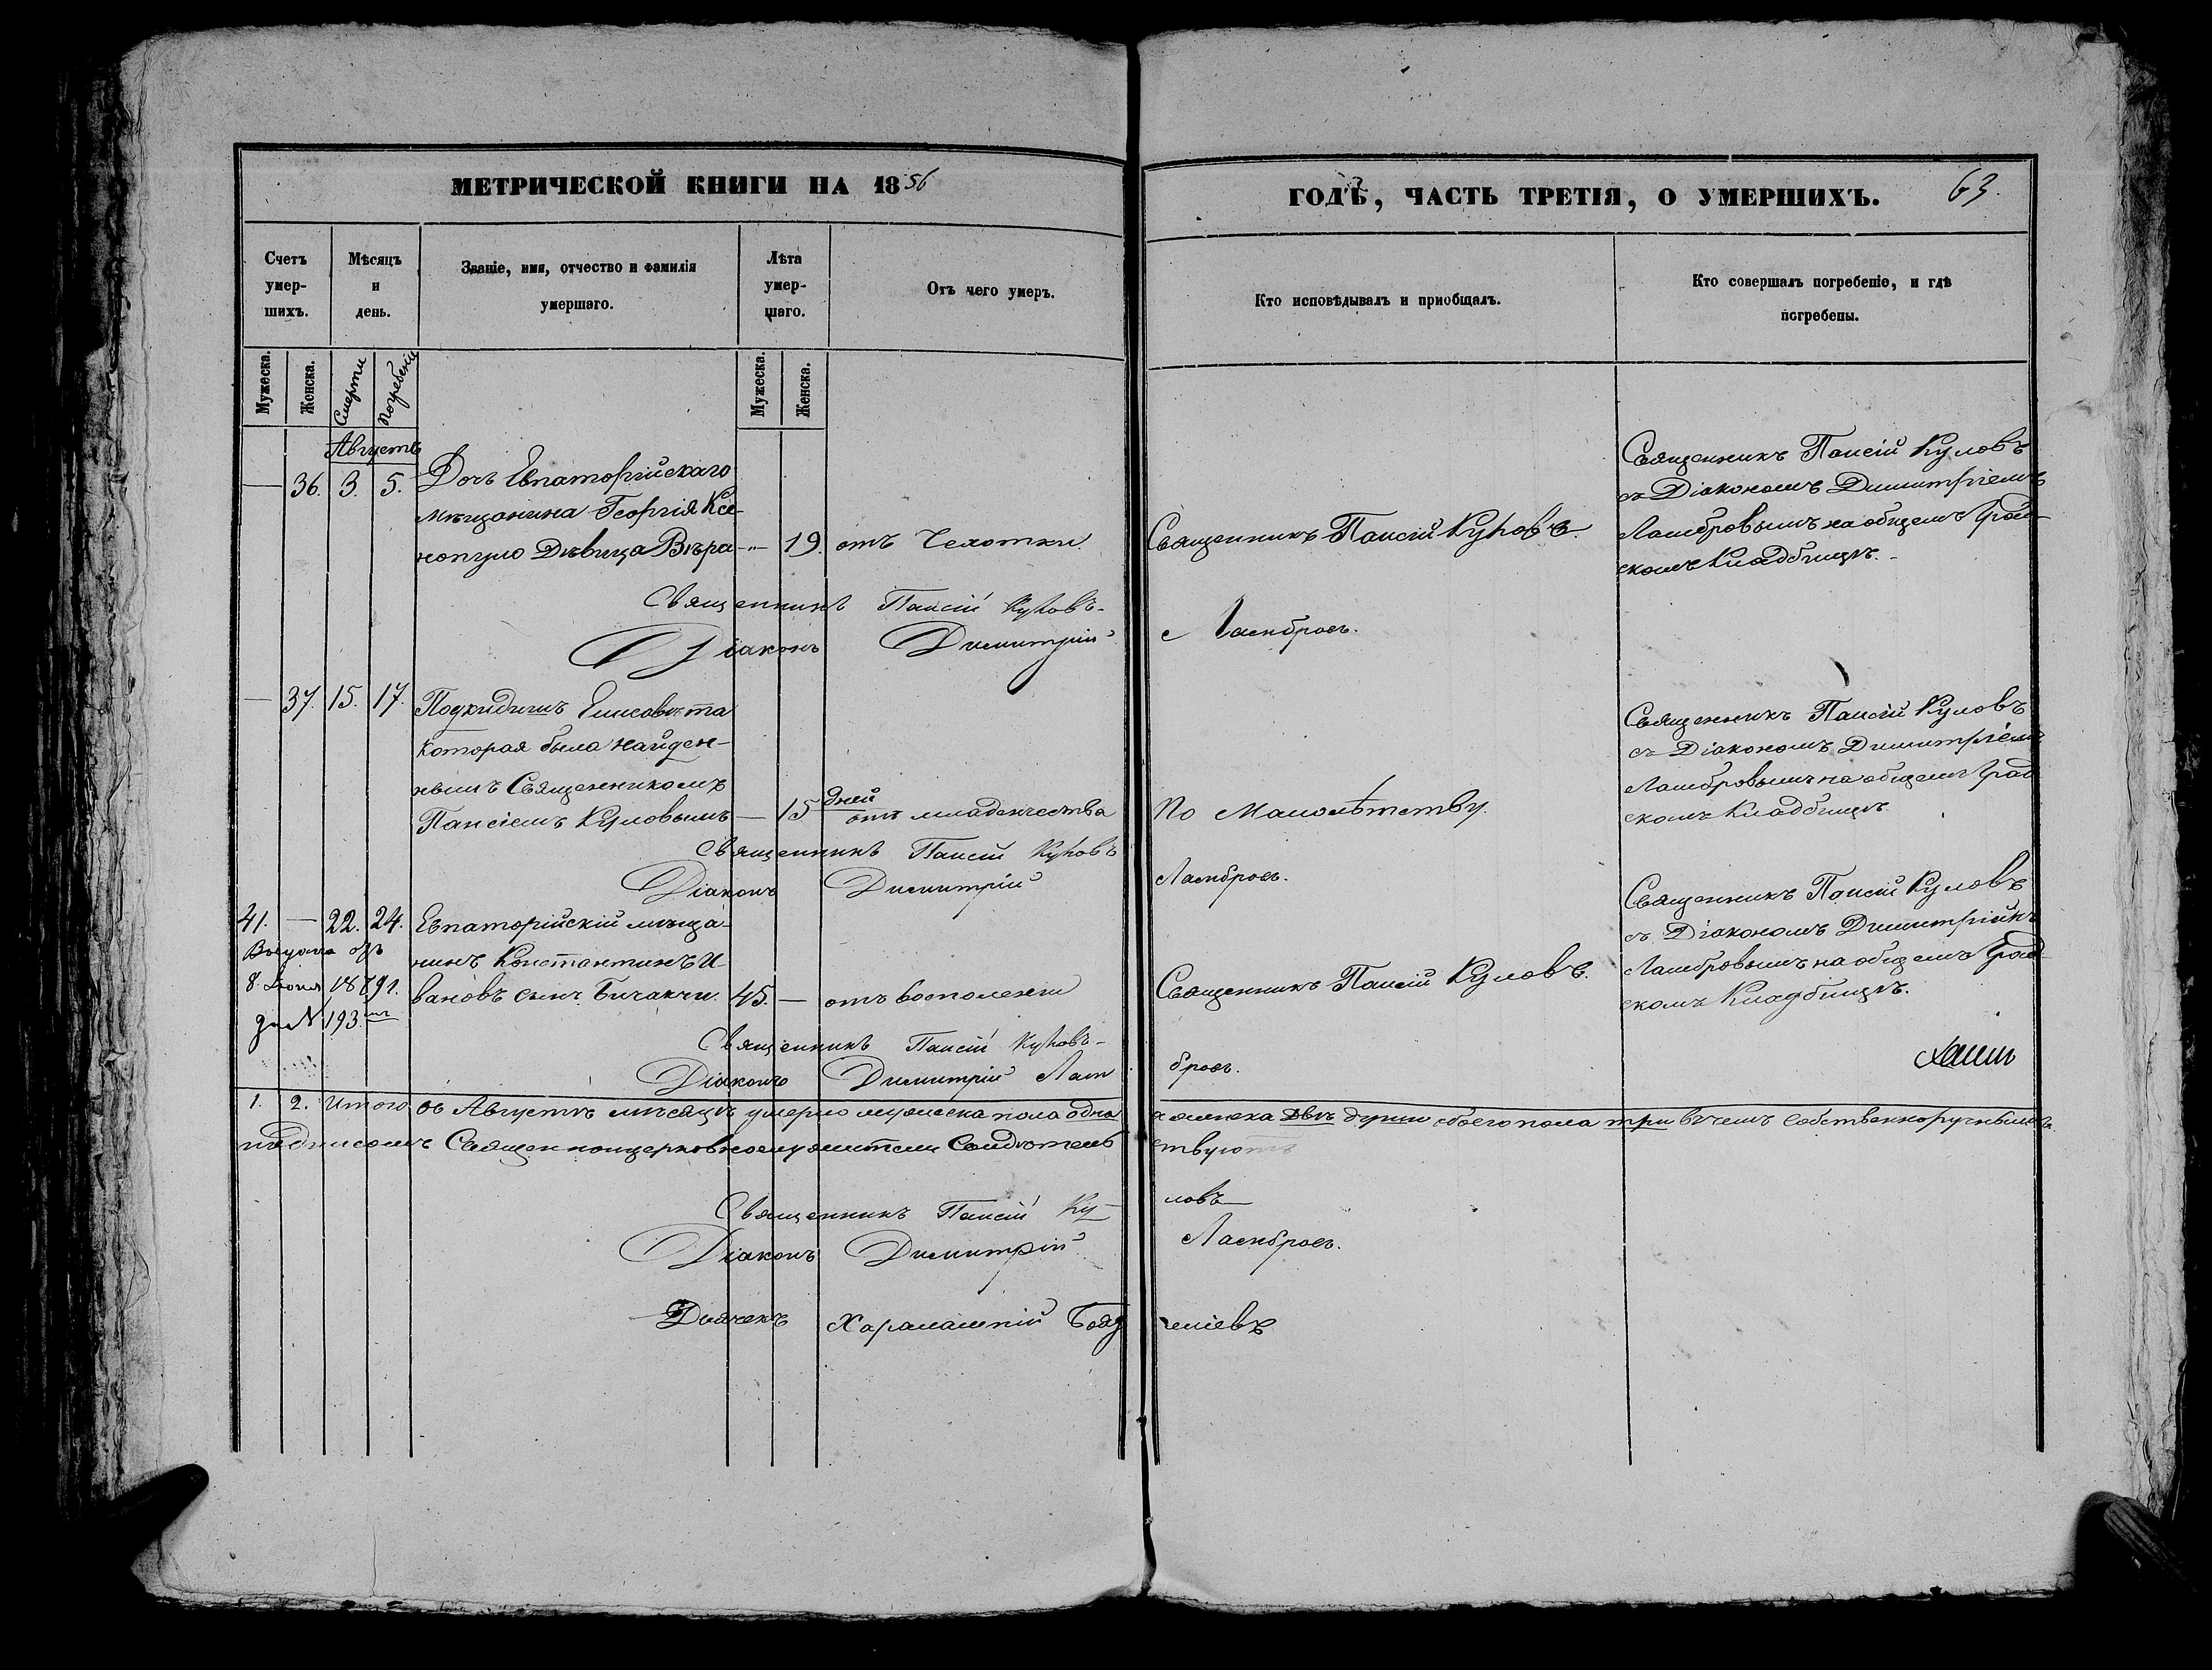 МЕТРИЧЕСКОЙ КНИГИ НА 1856
ГОДЪ, ЧАСТЬ ТРЕТІЯ, О УМЕРШИХЪ.
63.
Счетъ умер-шихъ.
Мѣсяцъ и день.
Званіе, имя, отчество и фамилія умершаго.
Лѣта умер-шаго.
Отъ чего умеръ.
Кто исповѣдывалъ и пріобщалъ.
Кто совершалъ погребеніе, и гдѣ погребены.
Мужеска.
Женска.
Смерти
Погребенія
Мужеска.
Женска.
Августъ
— 36. 3. 5. Дочь Евпаторійскаго
мѣщанина Георгія Ксе-
нопуло Дѣвица Вѣра -"- 19. отъ Чехотки.
Священникъ Паисій Куловъ.
Священникъ Паисій Куловъ
съ Діакономъ Димитріемъ
Ламбровымъ на общемъ Град-
скомъ Кладбищѣ.
Священникъ Паисій Куловъ
Діаконъ Димитрій Ламбровъ.
— 37. 15. 17. Подкидышъ Елисавета
которая была найден-
нымъ Священникомъ
Паисіемъ Куловымъ — 15 дней отъ младенчества
По Малолѣтству.
Священникъ Паисій Куловъ
съ Діакономъ Димитріемъ
Ламбровымъ на общемъ Град-
скомъ Кладбищѣ
Священникъ Паисій Куловъ
Діаконъ Димитрій Ламбровъ.
41. — 22. 24. Евпаторійскій мѣща-
нинъ Константинъ И-
вановъ сынъ Бичакчи. 45. — отъ восполенія
8 Іюня 1879 г.
за № 193
Священникъ Паисій Куловъ.
Священникъ Паисій Куловъ
съ Діакономъ Димитріемъ
Ламбровымъ на общемъ Град-
скомъ Кладбищѣ.
Священникъ Паисій Куловъ
Діаконъ Димитрій Ламбровъ.
1. 2. Итого въ Августѣ мѣсяцѣ умерло мужеска пола одна а женска двѣ души обоего пола три въ чемъ собственноручнымъ
подписомъ Священноцерковнослужители Свидѣтельствуютъ
Священникъ Паисій Куловъ
Діаконъ Димитрій Ламбровъ.
Дьячекъ Харалампій